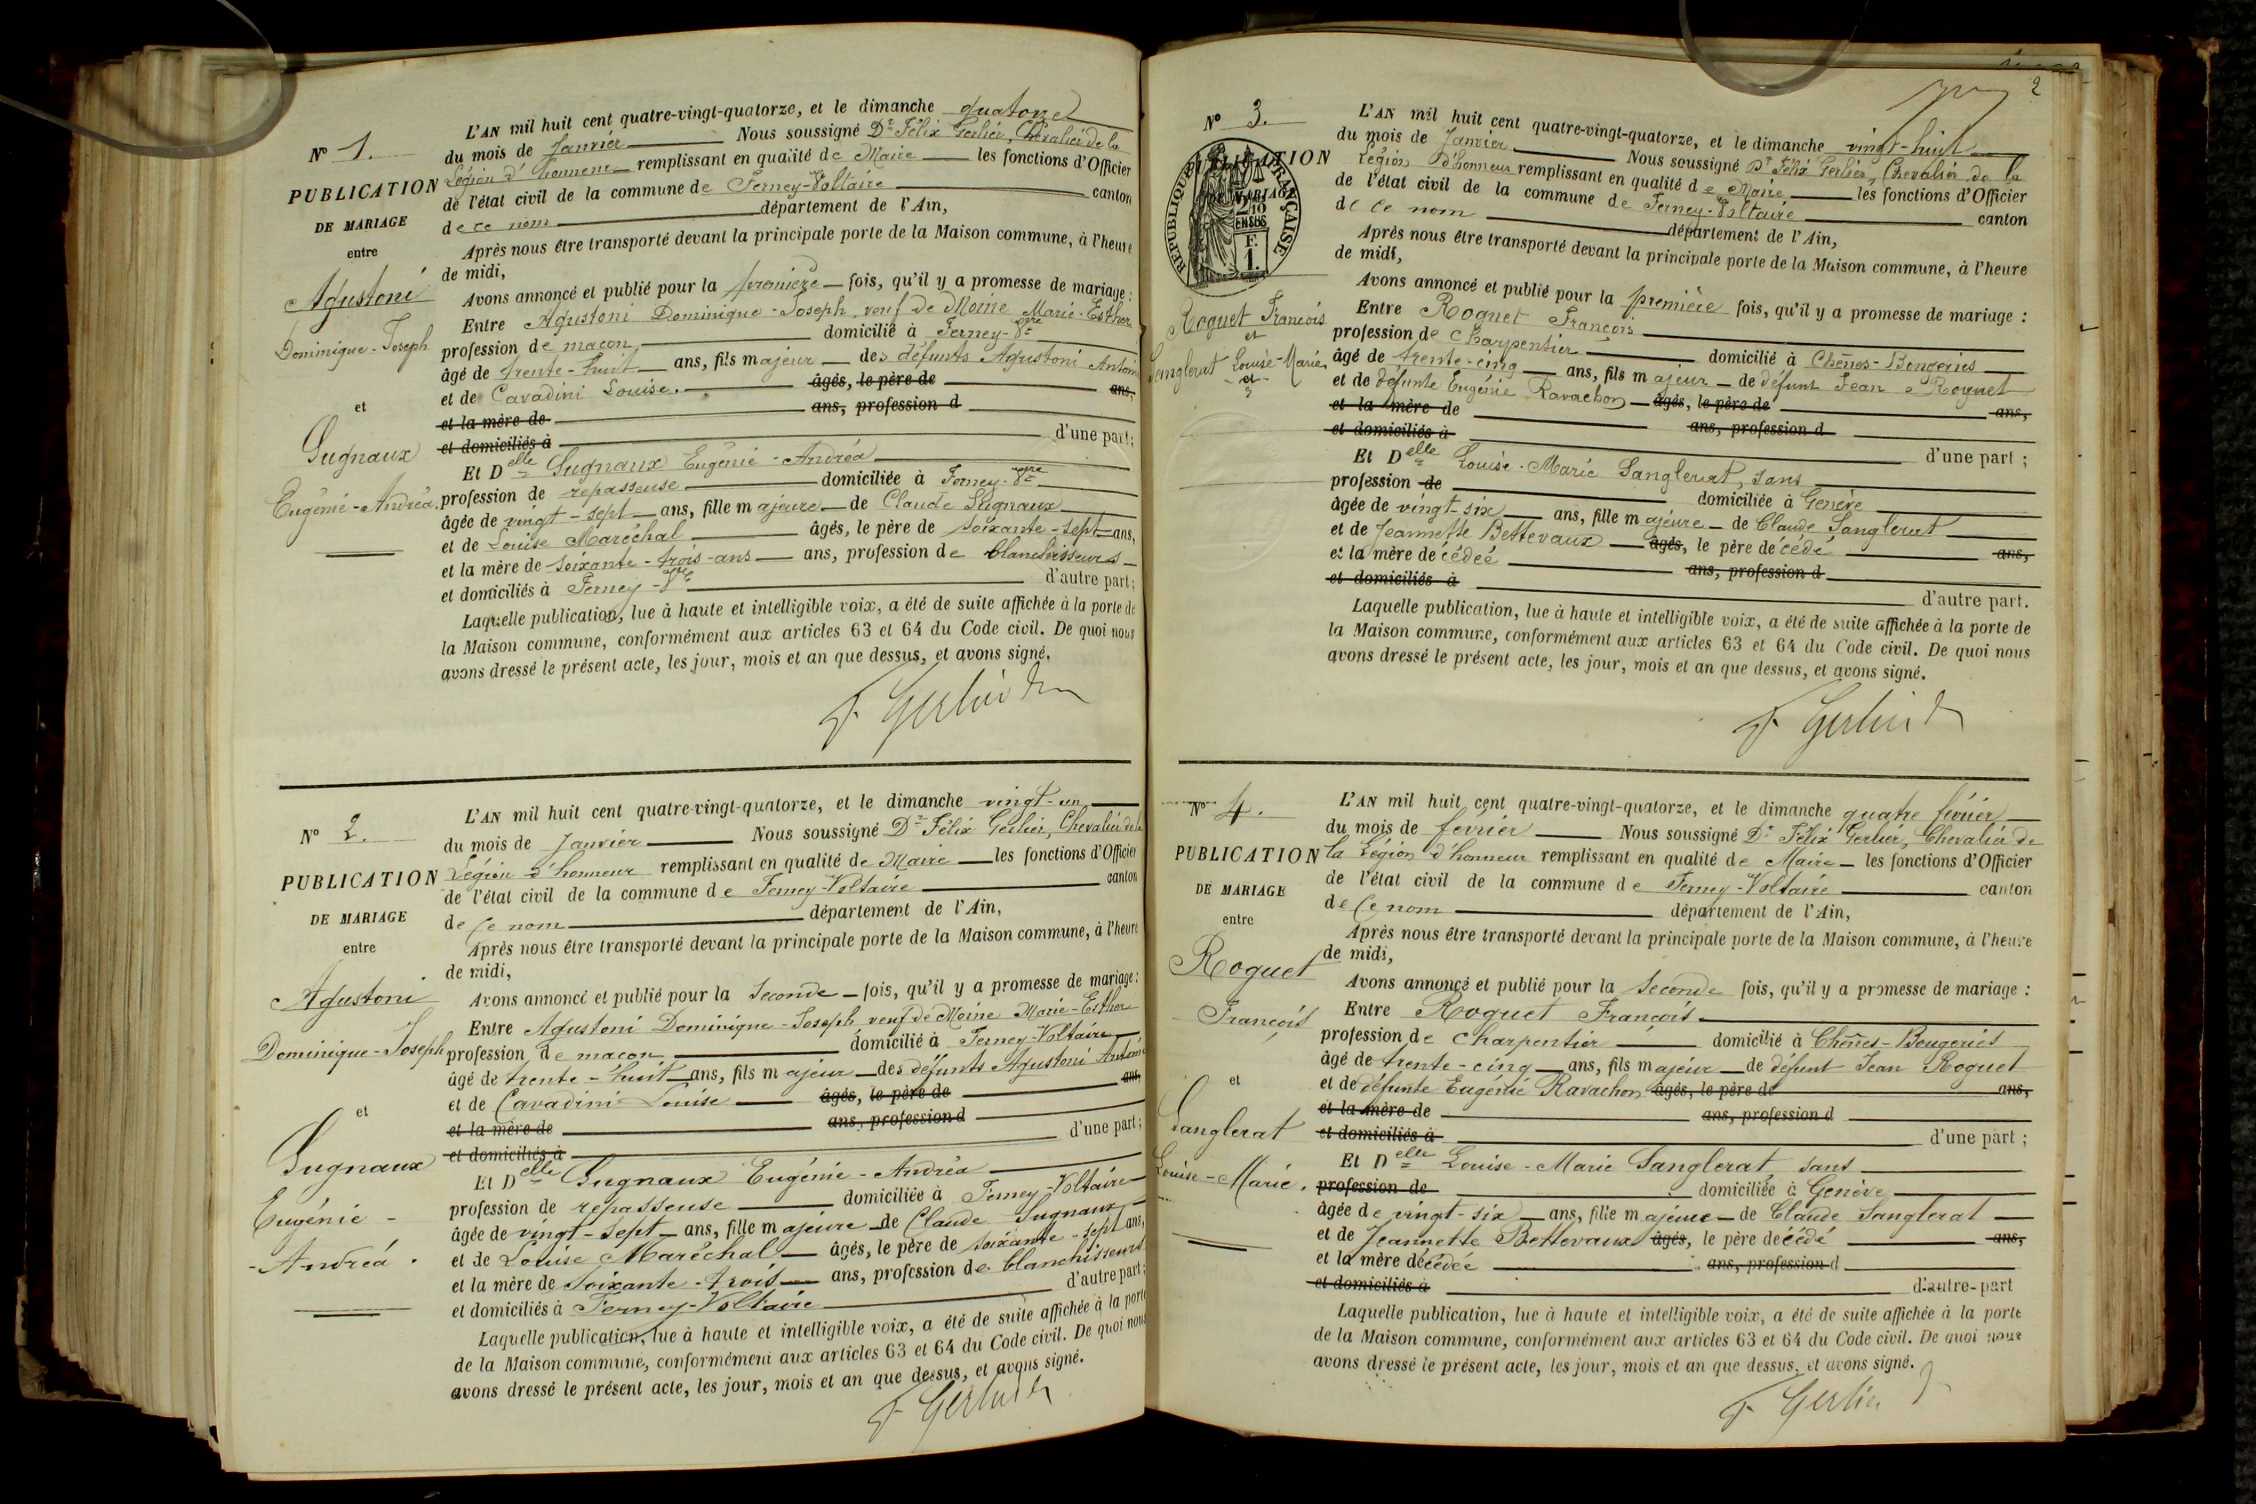 N° 1.
PUBLICATION
DE MARIAGE
entre
Agustoni
Dominique-Joseph
et
Gugnaux
Eugénie-Andréa.
L'AN mil huit cent quatre-vingt-quatorze, et le dimanche quatorze
du mois de Janvier Nous soussigné Dr Félix Gerlier, Chevalier de la
Légion d'honneur remplissant en qualité de Maire les fonctions d'Officier
de l'état civil de la commune de Ferney-Voltaire canton
de ce nom département de l'Ain,
Après nous être transporté devant la principale porte de la Maison commune, à l'heure
de midi,
Avons annoncé et publié pour la première fois, qu'il y a promesse de mariage :
Entre Agustoni Dominique-Joseph veuf de Moine Marie-Esther
profession de maçon domicilié à Ferney-Vre
âgé de trente-huit ans, fils majeur des défunts Agustoni Antoine
et de Cavadini Louise. âgés, le père de ans,
et la mère de ans, profession d
et domiciliés à d'une part ;
Et Delle Gugnaux Eugénie-Andréa
profession de repasseuse domiciliée à Ferney-Vre
âgée de vingt-sept ans, fille majeure de Claude Gugnaux
et de Louise Maréchal âgés, le père de soixante-sept ans,
et la mère de soixante-trois-ans ans, profession de blanchisseurs
et domiciliés à Ferney-Vre d'autre part ;
Laquelle publication, lue à haute et intelligible voix, a été de suite affichée à la porte de
la Maison commune, conformément aux articles 63 et 64 du Code civil. De quoi nous
avons dressé le présent acte, les jour, mois et an que dessus, et avons signé.
F. Gerlier
N° 2.
PUBLICATION
DE MARIAGE
entre
Agustoni
Dominique-Joseph
et
Gugnaux
Eugénie-
-Andréa.
L'AN mil huit cent quatre-vingt-quatorze, et le dimanche vingt-un
du mois de Janvier Nous soussigné Dr Félix Gerlier, Chevalier de la
Légion d'honneur remplissant en qualité de Maire les fonctions d'Officier
de l'état civil de la commune de Ferney-Voltaire canton
de ce nom département de l'Ain,
Après nous être transporté devant la principale porte de la Maison commune, à l'heure
de midi,
Avons annoncé et publié pour la seconde fois, qu'il y a promesse de mariage :
Entre Agustoni Dominique-Joseph veuf de Moine Marie-Esther
profession de maçon domicilié à Ferney-Voltaire
âgé de trente-huit ans, fils majeur des défunts Agustoni Antoine
et de Cavadini Louise âgés, le père de ans,
et la mère de ans, profession d
et domiciliés à d'une part ;
Et Delle Gugnaux Eugénie-Andréa
profession de repasseuse domiciliée à Ferney-Voltaire
âgée de vingt-sept ans, fille majeure de Claude Gugnaux
et de Louise Maréchal âgés, le père de soixante-sept ans,
et la mère de soixante-trois ans, profession de blanchisseurs
et domiciliés à Ferney-Voltaire d'autre part ;
Laquelle publication, lue à haute et intelligible voix, a été de suite affichée à la porte
de la Maison commune, conformément aux articles 63 et 64 du Code civil. De quoi nous
avons dressé le présent acte, les jour, mois et an que dessus, et avons signé.
F. Gerlier
2
N° 3.
PUBLICATION
DE MARIAGE
RÉPUBLIQUE FRANÇAISE
2/10
EN SUS
F.
1.
Roguet François
et
Sanglerat Louise-Marie
L'AN mil huit cent quatre-vingt-quatorze, et le dimanche vingt-huit
du mois de Janvier Nous soussigné Dr Félix Gerlier, Chevalier de la
Légion d'honneur remplissant en qualité de Maire les fonctions d'Officier
de l'état civil de la commune de Ferney-Voltaire canton
de ce nom département de l'Ain,
Après nous être transporté devant la principale porte de la Maison commune, à l'heure
de midi,
Avons annoncé et publié pour la première fois, qu'il y a promesse de mariage :
Entre Roguet François
profession de charpentier domicilié à Chênes-Bougeries
âgé de trente-cinq ans, fils majeur de défunt Jean Roguet
et de défunte Eugénie Ravachon âgés, le père de ans,
et la mère de ans, profession d
et domiciliés à d'une part ;
Et Delle Louise-Marie Sanglerat, sans
profession de domiciliée à Genève
âgée de vingt-six ans, fille majeure de Claude Sanglerat
et de Jeannette Bettevaux âgés, le père décédé ans,
et la mère décédée ans, profession d
et domiciliés à d'autre part.
Laquelle publication, lue à haute et intelligible voix, a été de suite affichée à la porte de
la Maison commune, conformément aux articles 63 et 64 du Code civil. De quoi nous
avons dressé le présent acte, les jour, mois et an que dessus, et avons signé.
F. Gerlier
N° 4.
PUBLICATION
DE MARIAGE
entre
Roguet
François
et
Sanglerat
Louise-Marie.
L'AN mil huit cent quatre-vingt-quatorze, et le dimanche quatre février
du mois de février Nous soussigné Dr Félix Gerlier, Chevalier de
la Légion d'honneur remplissant en qualité de Maire les fonctions d'Officier
de l'état civil de la commune de Ferney-Voltaire canton
de ce nom département de l'Ain,
Après nous être transporté devant la principale porte de la Maison commune, à l'heure
de midi,
Avons annoncé et publié pour la seconde fois, qu'il y a promesse de mariage :
Entre Roguet François
profession de charpentier domicilié à Chênes-Bougeries
âgé de trente-cinq ans, fils majeur de défunt Jean Roguet
et de défunte Eugénie Ravachon âgés, le père de ans,
et la mère de ans, profession d
et domiciliés à d'une part ;
Et Delle Louise-Marie Sanglerat, sans
profession de domiciliée à Genève
âgée de vingt-six ans, fille majeure de Claude Sanglerat
et de Jeannette Bettevaux âgés, le père décédé ans,
et la mère décédée ans, profession d
et domiciliés à d'autre part
Laquelle publication, lue à haute et intelligible voix, a été de suite affichée à la porte
de la Maison commune, conformément aux articles 63 et 64 du Code civil. De quoi nous
avons dressé le présent acte, les jour, mois et an que dessus, et avons signé.
F. Gerlier